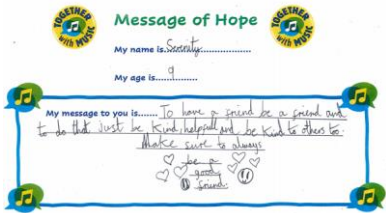 TOGETHER with MUSIC
Message of Hope
TOGETHER with MUSIC
My name is.Serenity..................
My age is.....9.........
My message to you is....... To have a friend be a friend and
to do that Just be kind, helpfull and be kind to others too.
Make sure to always
be a
good
friend.